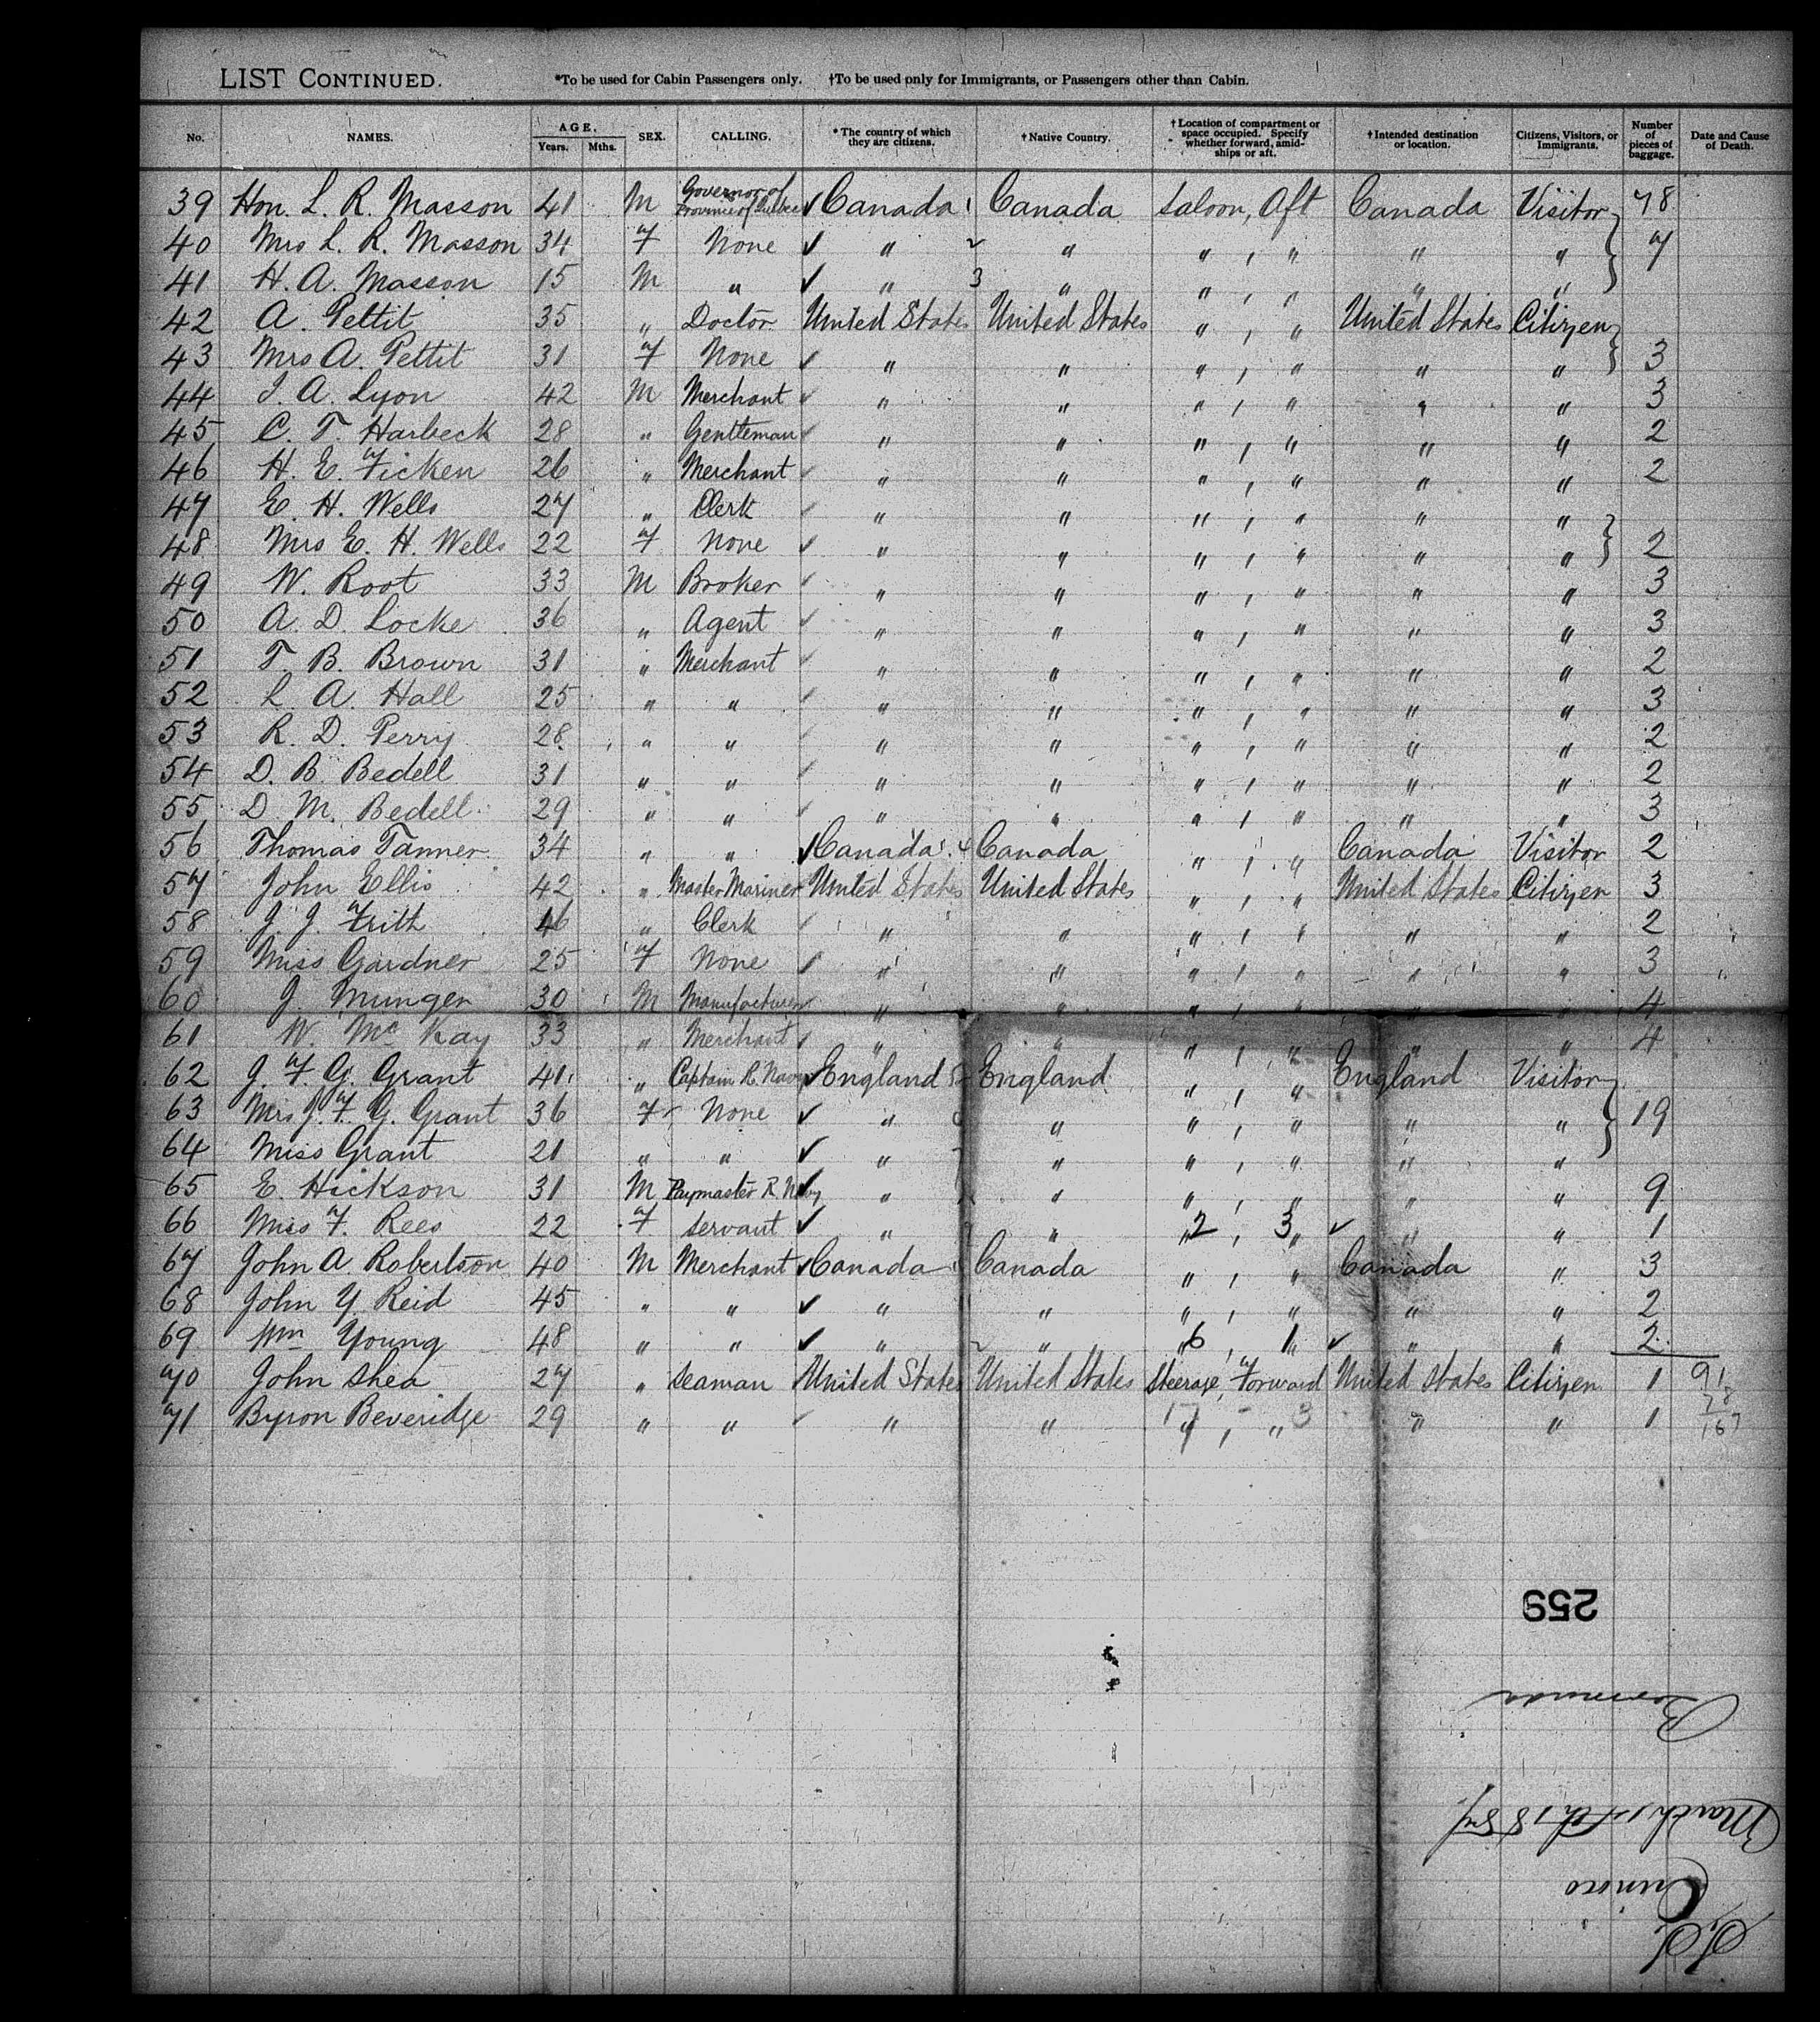 LIST CONTINUED. *To be used for Cabin Passengers only. †To be used only for Immigrants, or Passengers other than Cabin.
No. NAMES. AGE. Years. Mths. SEX. CALLING. * The country of which they are citizens. † Native Country. † Location of compartment or space occupied. Specify whether forward, amidships or aft. † Intended destination or location. Citizens, Visitors, or Immigrants. Number of pieces of baggage. Date and Cause of Death.
39 Hon. L. R. Masson 41 M Governor of Province of Quebec Canada 1 Canada Saloon, Aft Canada Visitor 78
40 Mrs L. R. Masson 34 F None " 2 " " , " " " 7
41 H. A. Masson 15 M " " 3 " " , " " "
42 A. Pettit 35 " Doctor United States United States " , " United States Citizen
43 Mrs A. Pettit 31 F None " " " , " " " 3
44 J. A. Lyon 42 M Merchant " " " , " " " 3
45 C. T. Harbeck 28 " Gentleman " " " , " " " 2
46 H. E. Ficken 26 " Merchant " " " , " " " 2
47 E. H. Wells 27 " Clerk " " " , " " "
48 Mrs E. H. Wells 22 F None " " " , " " " 2
49 W. Root 33 M Broker " " " , " " " 3
50 A. D. Locke 36 " Agent " " " , " " " 3
51 T. B. Brown 31 " Merchant " " " , " " " 2
52 L. A. Hall 25 " " " " " , " " " 3
53 R. D. Perry 28 " " " " " , " " " 2
54 D. B. Bedell 31 " " " " " , " " " 2
55 D. M. Bedell 29 " " " " " , " " " 3
56 Thomas Tanner 34 " " Canada 4 Canada " , " Canada Visitor 2
57 John Ellis 42 " Master Mariner United States United States " , " United States Citizen 3
58 J. J. Frith 46 " Clerk " " " , " " " 2
59 Miss Gardner 25 F None " " " , " " " 3
60 J. Munger 30 M Manufacturer " " " , " " " 4
61 W. McKay 33 " Merchant " " " , " " " 4
62 J. F. G. Grant 41 " Captain R. Navy England 5 England " , " England Visitor
63 Mrs J. F. G. Grant 36 F None " " " , " " " 19
64 Miss Grant 21 " " " " " , " " "
65 E. Hickson 31 M Paymaster R. Navy " " " , " " " 9
66 Miss F. Rees 22 F Servant " " " 2 , 3 " " " 1
67 John A Robertson 40 M Merchant Canada Canada " , " Canada " 3
68 John Y. Reid 45 " " " " " , " " " 2
69 Wm Young 48 " " " " " 6 , 1 " " " 2
70 John Shea 27 " Seaman United States United States Steerage, Forward United States Citizen 1 91
71 Byron Beveridge 29 " " " " " , " 3 " " 1 78
167
259
Bermuda
March 14th 1887.
Orinoco
S.S.